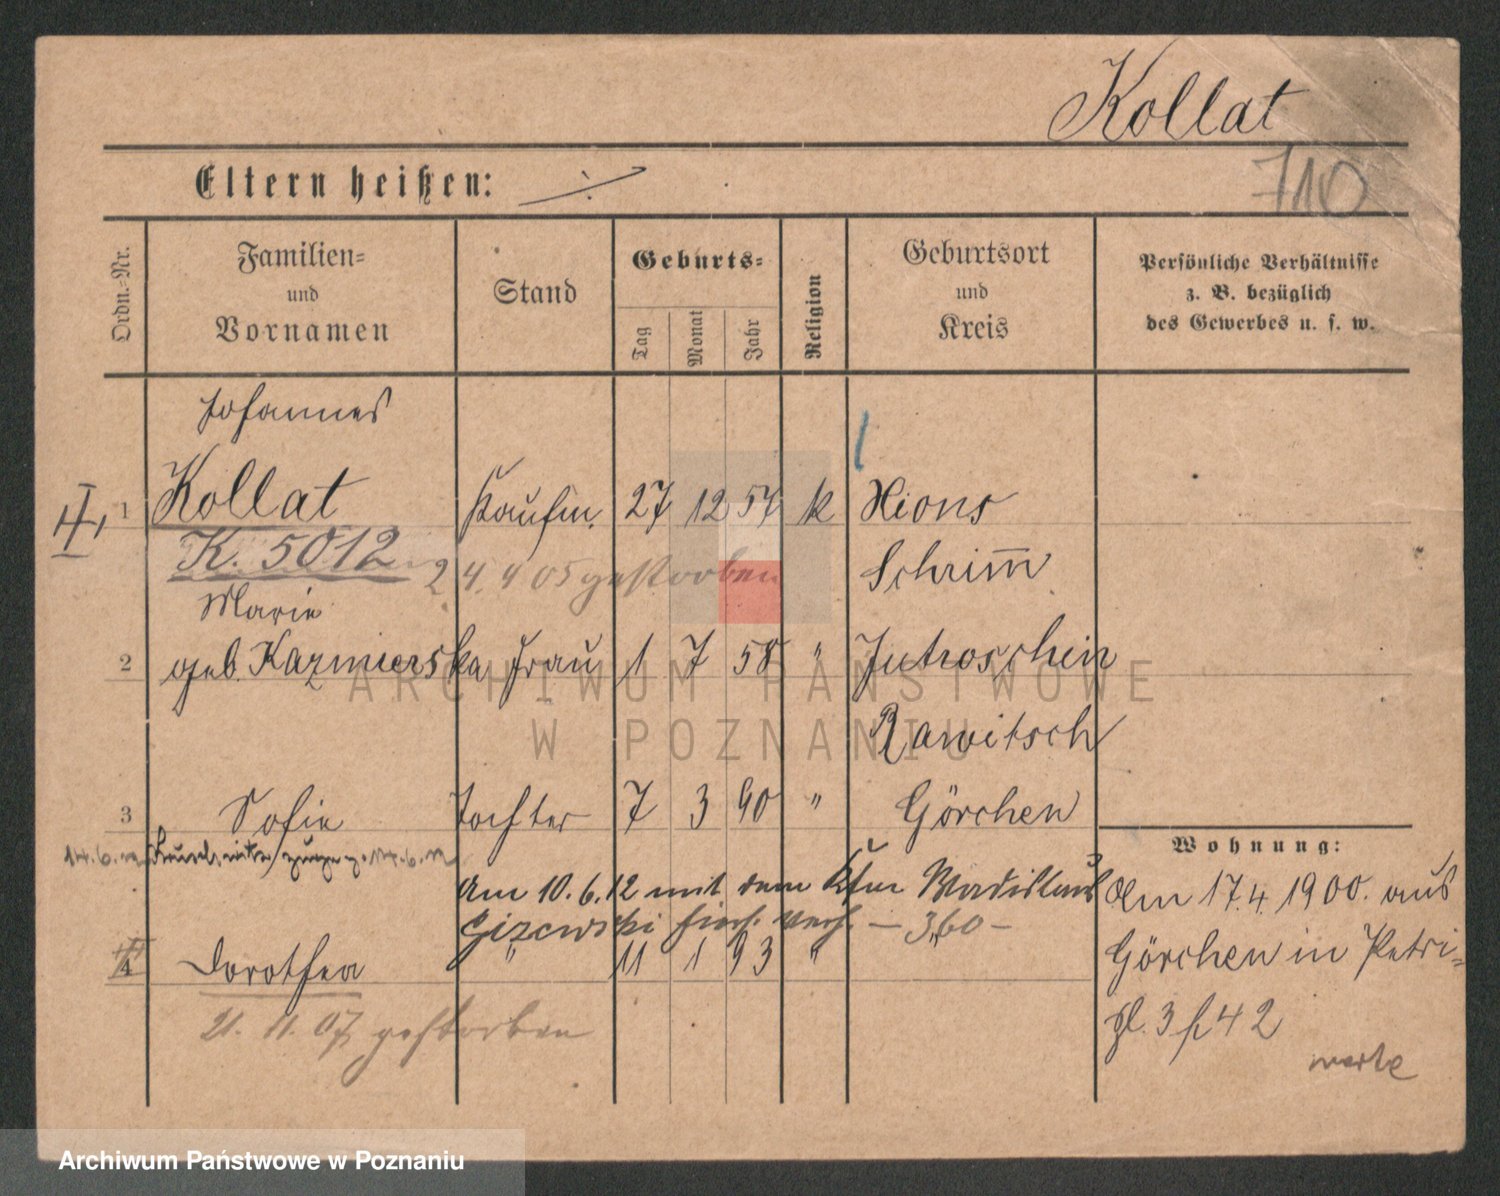 Kollat
710
Eltern heißen: ./.
Ordn.-Nr.
Familien-
und
Vornamen
Stand
Geburts-
Tag
Monat
Jahr
Religion
Geburtsort
und
Kreis
Persönliche Verhältnisse
z. B. bezüglich
des Gewerbes u. s. w.
Johannes
1 Kollat Kaufm. 27 12 57 k Xions
K. 5012 24.4.05 gestorben Schrimm
Marie
2 geb. Kazmierska Frau 1 7 58 " Jutroschin
Rawitsch
3 Sofie Tochter 7 3 90 " Görchen
14.6. 14.6.12
Am 10.6.12 mit dem Kfm Wladislaus
Gizewski verh. — 360 —
4 Dorothea " 11 1 93 "
21. 11. 07 gestorben
Wohnung:
Am 17.4.1900. aus
Görchen in Petri-
pl. 3 b 42
ARCHIWUM PAŃSTWOWE
W POZNANIU
Archiwum Państwowe w Poznaniu